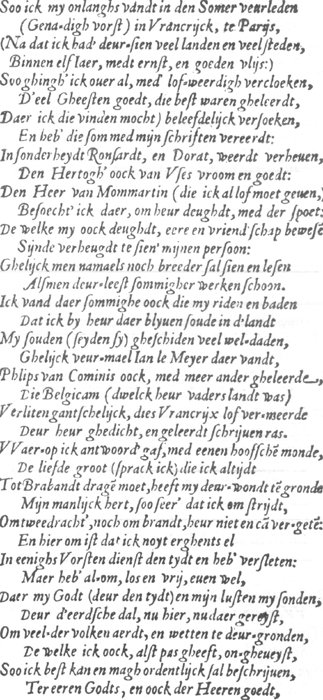 Soo ick my onlanghs vandt in den Somer veurleden
(Gena-digh vorst) in Vrancrijck, te Parijs,
(Na dat ick had' deur-sien veel landen en veel steden,
Binnen elf Iaer, medt ernst, en goeden vlijs:)
Soo ghingh' ick ouer al, med' lof-weerdigh vercloeken,
D'eel Gheesten goedt, die best waren gheleerdt,
Daer ick die vinden mocht) beleefdelijck versoeken,
En heb' die som med mijn schriften vereerdt:
In sonderheydt Ronsardt, en Dorat, weerdt verheuen,
Den Hertogh' oock van Vses vroom en goedt:
Den Heer van Mommartin (die ick al lof moet geuen,)
Besocht' ick daer, om heur deughdt, med der spoet:
De welke my oock deughdt, eere en vriendschap bewesē
Sijnde verheugdt te sien' mijnen persoon:
Ghelijck men namaels noch breeder sal sien en lesen
Alsmen deur-leest sommigher werken schoon.
Ick vand daer sommighe oock die my riden en baden
Dat ick by heur daer blyuen soude in d'landt
My souden (seyden sy) gheschiden veel wel-daden,
Ghelijck veur-mael Ian le Meyer daer vandt,
Phlips van Cominis oock, med meer ander gheleerde,
Die Belgicam (dwelck heur vaders landt was)
Verlieten gantschelijck, dies Vrancrijx lof ver-meerde
Deur heur ghedicht, en geleerdt schrijuen ras.
VVaer-op ick antwoord' gaf, med eenen hoofsche monde,
De liefde groot (sprack ick) die ick altijdt
Tot Brabandt dragē moet, heeft my deur-wondt te gronde
Mijn manlijck hert, soo seer' dat ick om strijdt,
Om tweedracht', noch om brandt, heur niet en cā ver-getē:
En hier om ist dat ick noyt erghents el
In eenighs Vorsten dienst den tydt en heb' versleten:
Maer heb' al-om, los en vrij, euen wel,
Daer my Godt (deur den tydt) en mijn lusten my sonden,
Deur d'eerdsche dal, nu hier, nu daer gereyst,
Om veel-der volken aerdt, en wetten te deur-gronden,
De welke ick oock, alst pas gheeft, on-gheueyst,
Soo ick best kan en magh ordentlijck sal beschrijuen,
Ter eeren Godts, en oock der Heeren goedt,